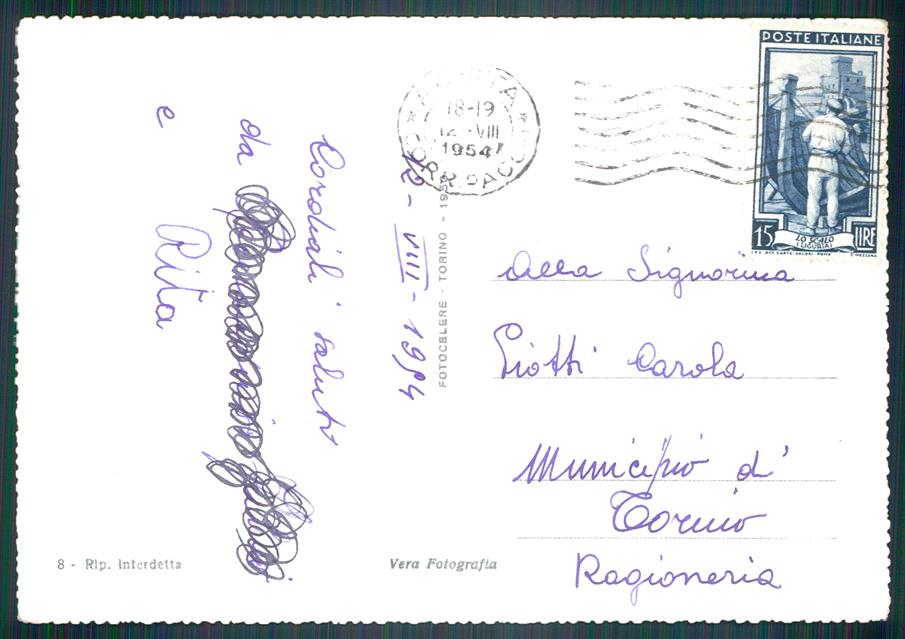 12 - VIII - 1954
Cordiali saluti
da
e Rita
POSTE ITALIANE
15 LIRE
LO SCALO
(LIGURIA)
18-19
12 - VIII
1954
CORR. PACCHI
FOTOCELERE - TORINO - 195
Alla Signorina
Carola
Municipio d'
Torino
Ragioneria
8 - Rip. Interdetta
Vera Fotografia